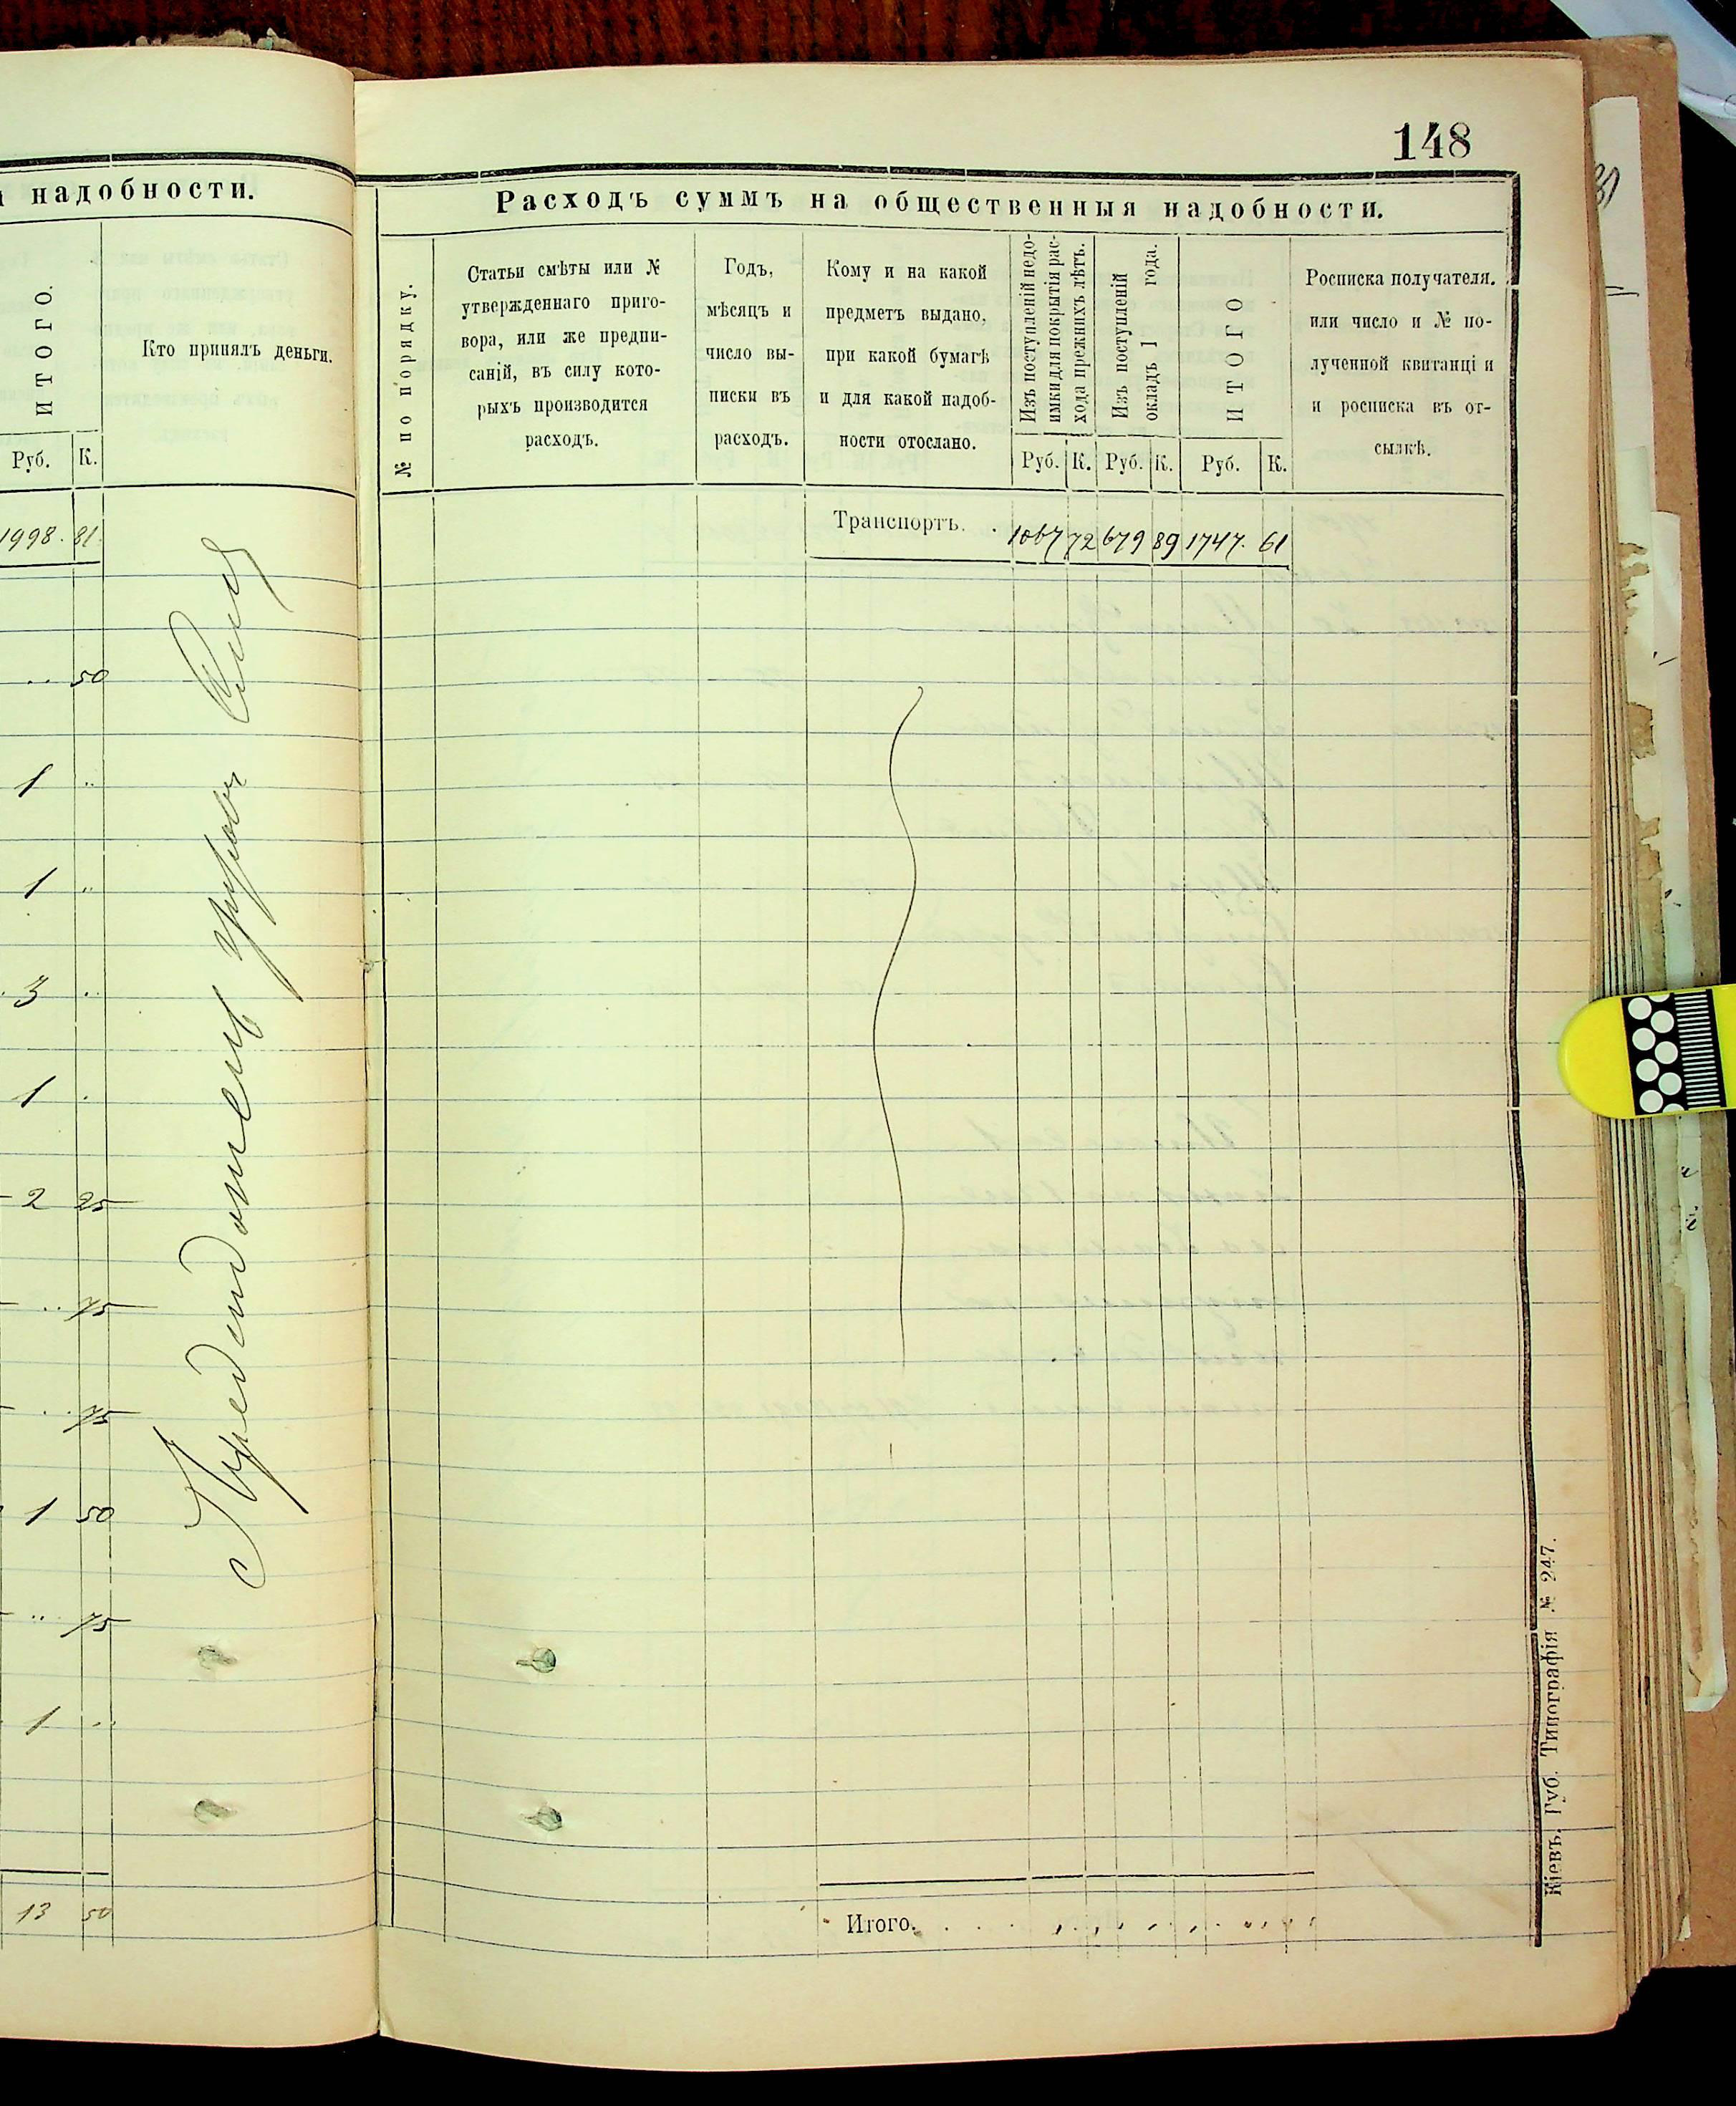 надобности.
ИТОГО.
Кто принялъ деньги.
Руб. К.
1998. 81.
.. 50
1 ..
1 ..
3 ..
1 .
2 25
.. 75
.. 75
1 50
.. 75
1 ..
13 50
148
Расходъ суммъ на общественныя надобности.
№ по порядку.
Статьи смѣты или №
утвержденнаго приго-
вора, или же предпи-
саній, въ силу кото-
рыхъ производится
расходъ.
Годъ,
мѣсяцъ и
число вы-
писки въ
расходъ.
Кому и на какой
предметъ выдано,
при какой бумагѣ
и для какой надоб-
ности отослано.
Изъ поступленій недо-
имки для покрытія рас-
хода прежнихъ лѣтъ.
Изъ поступленій
окладъ 1 года.
ИТОГО
Росписка получателя.
или число и № по-
лученной квитанці и
и росписка въ от-
сылкѣ.
Руб. К. Руб. К. Руб. К.
Транспортъ. . 1067 72 679 89 1747. 61
Итого. . . .
Кіевъ. Губ. Типографія № 247.